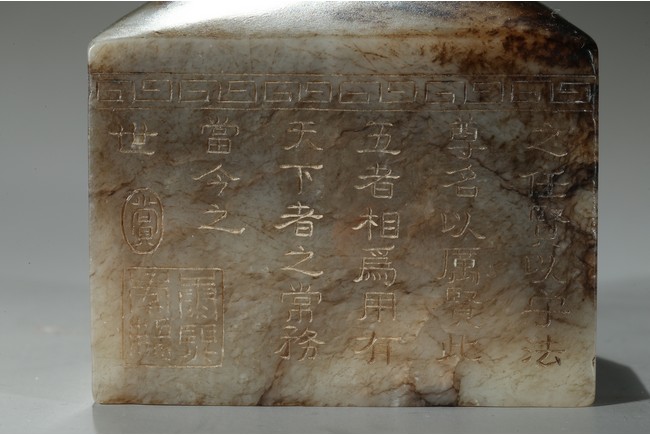 之任賢以中法
尊名以厲賢此
五者相爲用有
天下者之常務
當今之
世
賞